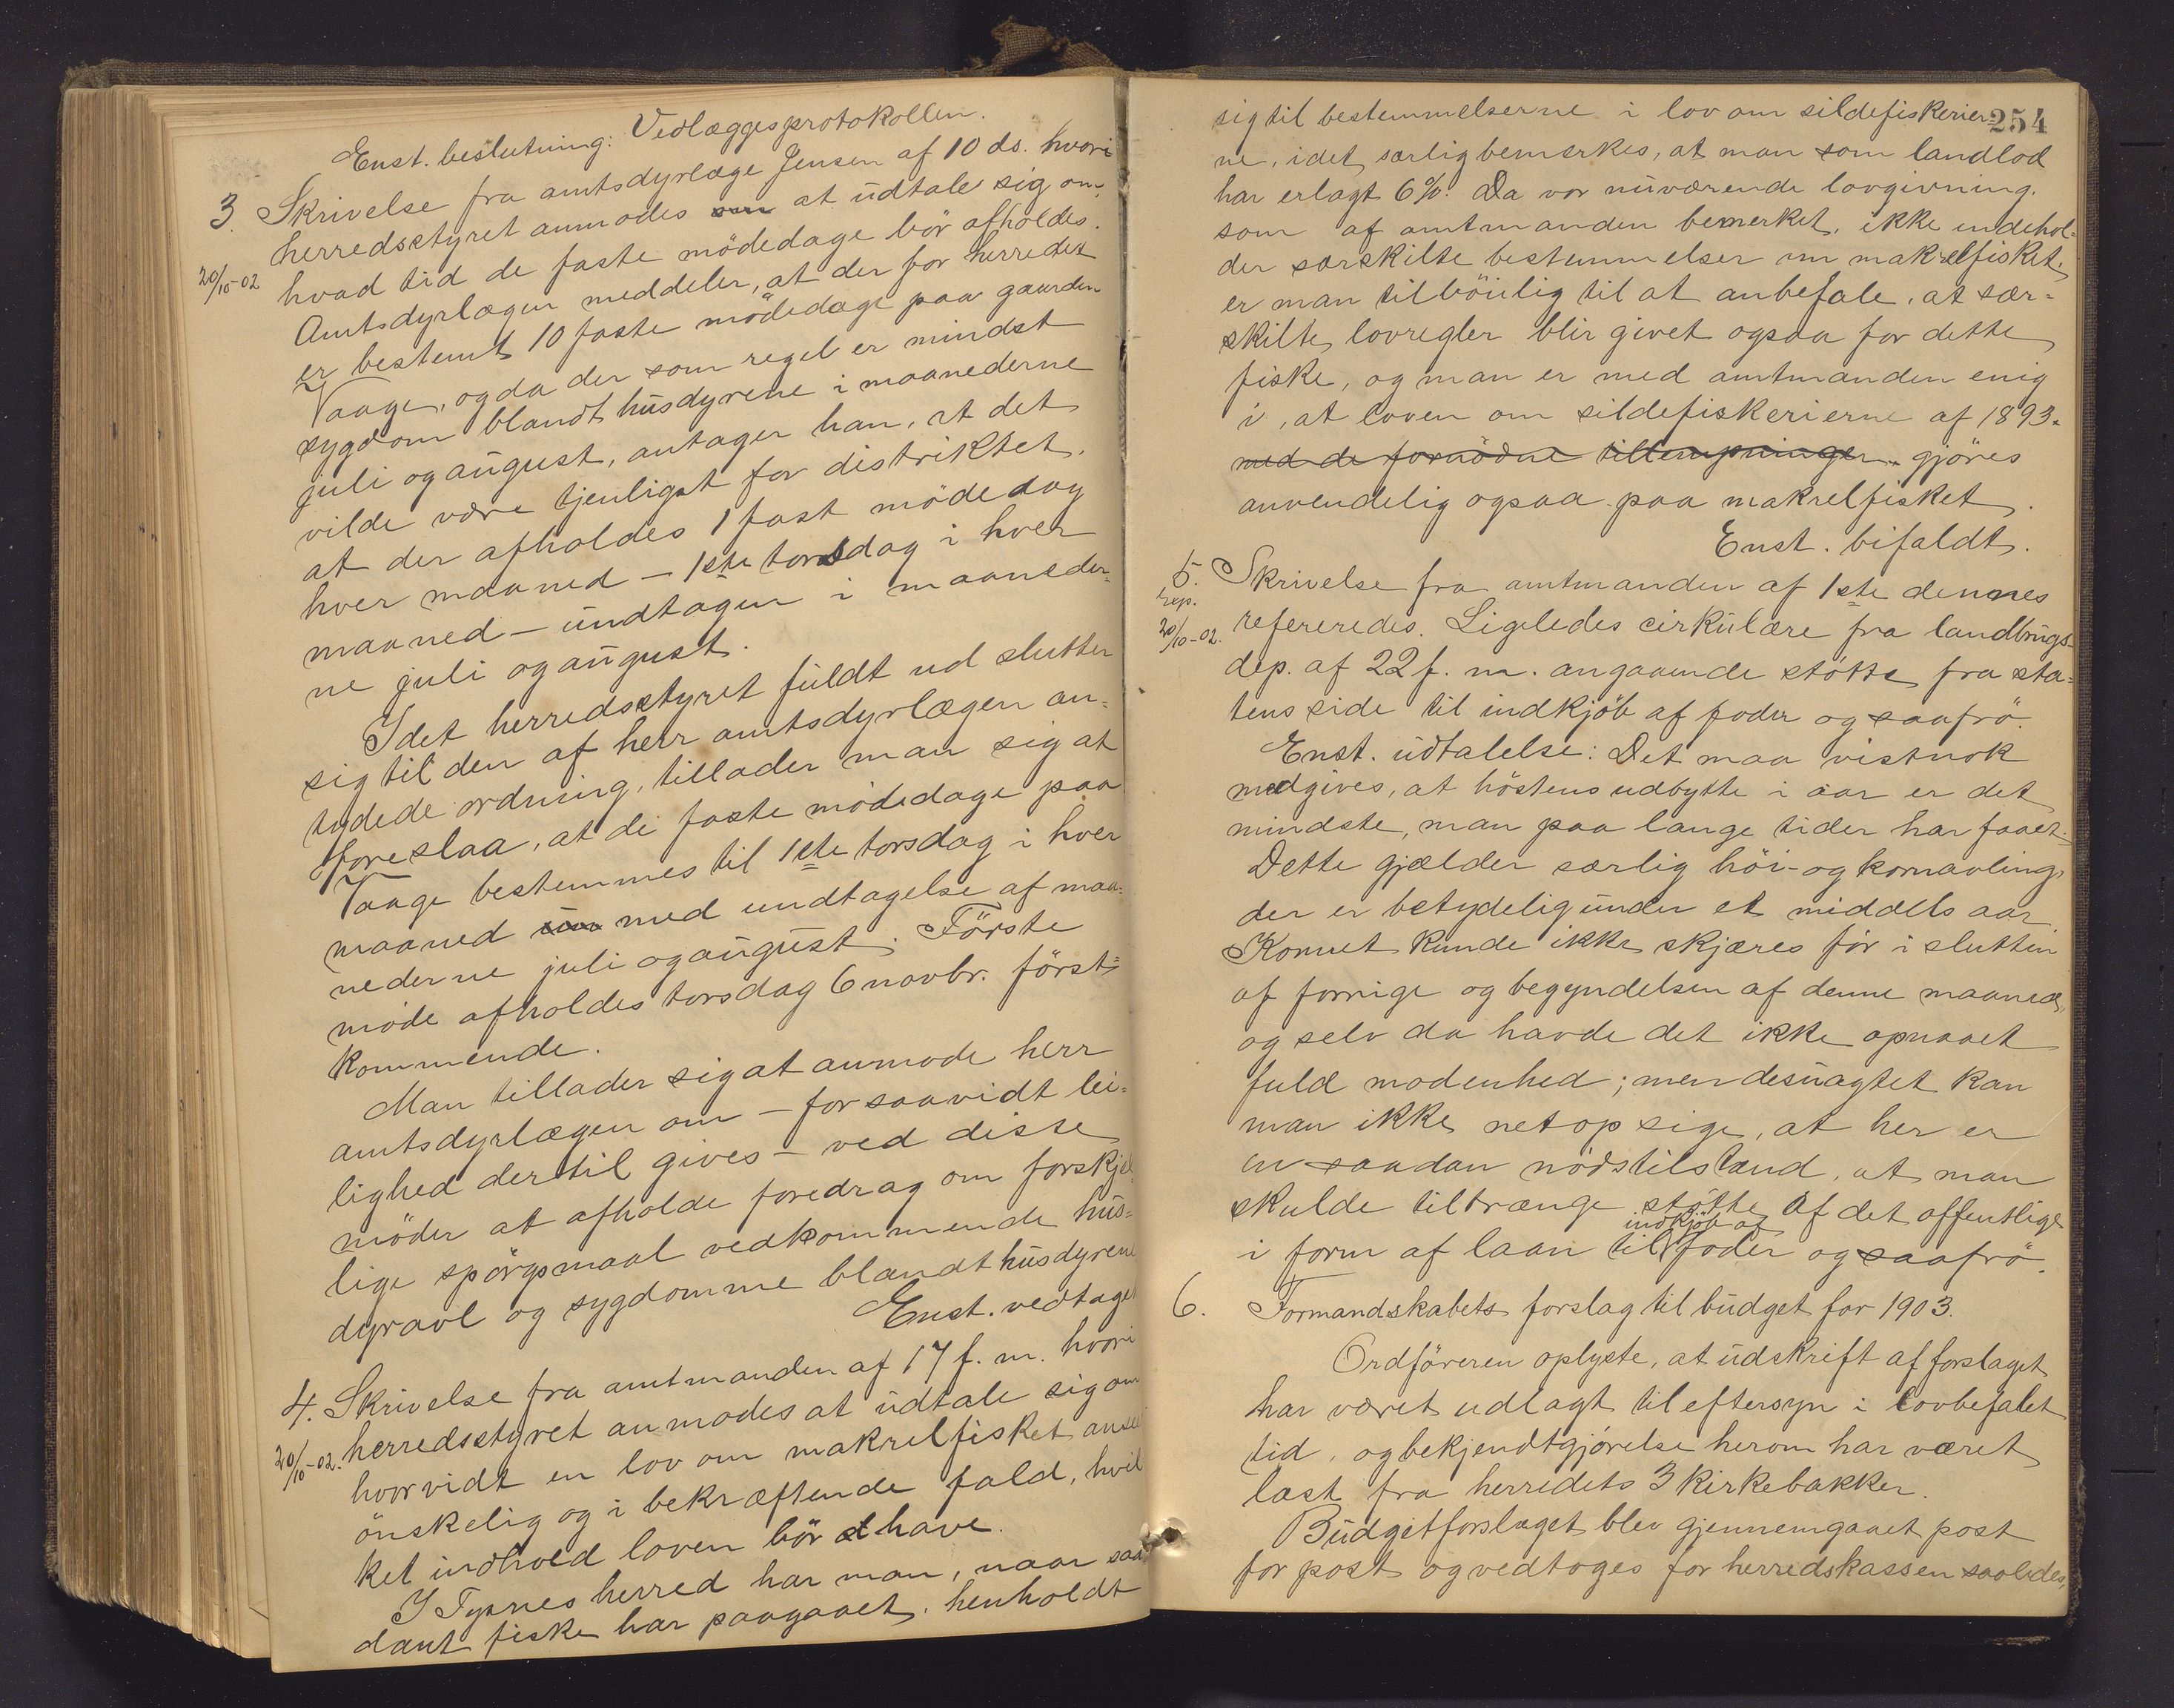 Enst. beslutning: Vedlægges protokollen.
3. Skrivelse fra amtsdyrlæge Jensen af 10 ds. hvori
herredsstyret anmodes om at udtale sig om,
20/10-02 hvad tid de faste mødedage bör afholdes.
Amtsdyrlægen meddeler, at der for herredet
er bestemt 10 faste mödedage paa gaarden
Vaage, og da der som regel er mindst
sygdom blandt husdyrene i maanederne
juli og august, antager han, at det
vilde være tjenligst for distriktet,
at der afholdes 1 fast mödedag
hver maaned – 1ste torsdag i hver
maaned – undtagen i maaneder=
ne juli og august.
Idet herredsstyret fuldt ud slutter
sig til den af herr amtsdyrlægen an=
tydede ordning, tillader man sig at
foreslaa, at de faste mödedage paa
Vaage bestemmes til 1ste torsdag i hver
maaned un med undtagelse af maa=
nederne juli og august. Förste
möde afholdes torsdag 6 novbr. först=
kommende.
Man tillader sig at anmode herr
amtsdyrlægen om – forsaavidt lei=
lighed dertil gives – ved disse
möder at afholde foredrag om forskjel=
lige spörgsmaal vedkommende hus=
dyravl og sygdomme blandt husdyrene
Enst. vedtaget
4. Skrivelse fra amtmanden af 17 f. m. hvori
20/10-02. herredsstyret anmodes at udtale sig om
hvorvidt en lov om makrelfisket ansees
önskelig og i bekræftende fald, hvil
ket indhold loven bör at have.
I Tysnes herred har man, naar saa
dant fiske har paagaaet, henholdt
254
sig til bestemmelserne i lov om sildefiskerier=
ne, idet særlig bemærkes, at man som landlod
har erlagt 6%. Da vor nuværende lovgivning,
som af amtmanden bemerket, ikke indehol=
der særskilte bestemmelser om makrelfisket,
er man tilböielig til at anbefale, at sær=
skilte lovregler blir givet ogsaa for dette
fiske, og man er med amtmanden enig
i, at loven om sildefiskerierne af 1893.
med de fornödne tillempninger gjöres
anvendelig ogsaa paa makrelfisket.
Enst. bifaldt.
5. Skrivelse fra amtmanden af 1ste dennes
20/10-02. refereredes. Ligeledes cirkulære fra landbrugs-
dep. af 22 f. m. angaaende stötte fra sta=
tens side til indkjöb af foder og saafrö.
Enst. udtalelse: Det maa vistnok
medgives, at höstens udbytte i aar er det
mindste, man paa lange tider har faaet.
Dette gjælder særlig höi- og kornavling,
der er betydelig under et middels aar
Kornet kunde ikke skjæres för i slutten
af forrige og begyndelsen af denne maaned,
og selv da havde det ikke opnaaet
fuld modenhed; men desuagtet kan
man ikke netop sige, at her er
en saadan nödstilstand, at man
skulde tiltrænge stötte af det offentlige
indkjöb af
i form af laan til foder og saafrö.
6. Formandskabets forslag til budget for 1903.
Ordföreren oplyste, at udskrift af forslaget
har været udlagt til eftersyn i lovbefalet
tid, og bekjendtgjörelse herom har været
læst fra herredets 3 kirkebakker.
Budgetforslaget blev gjennemgaaet post
for post og vedtoges for herredskassen saaledes,